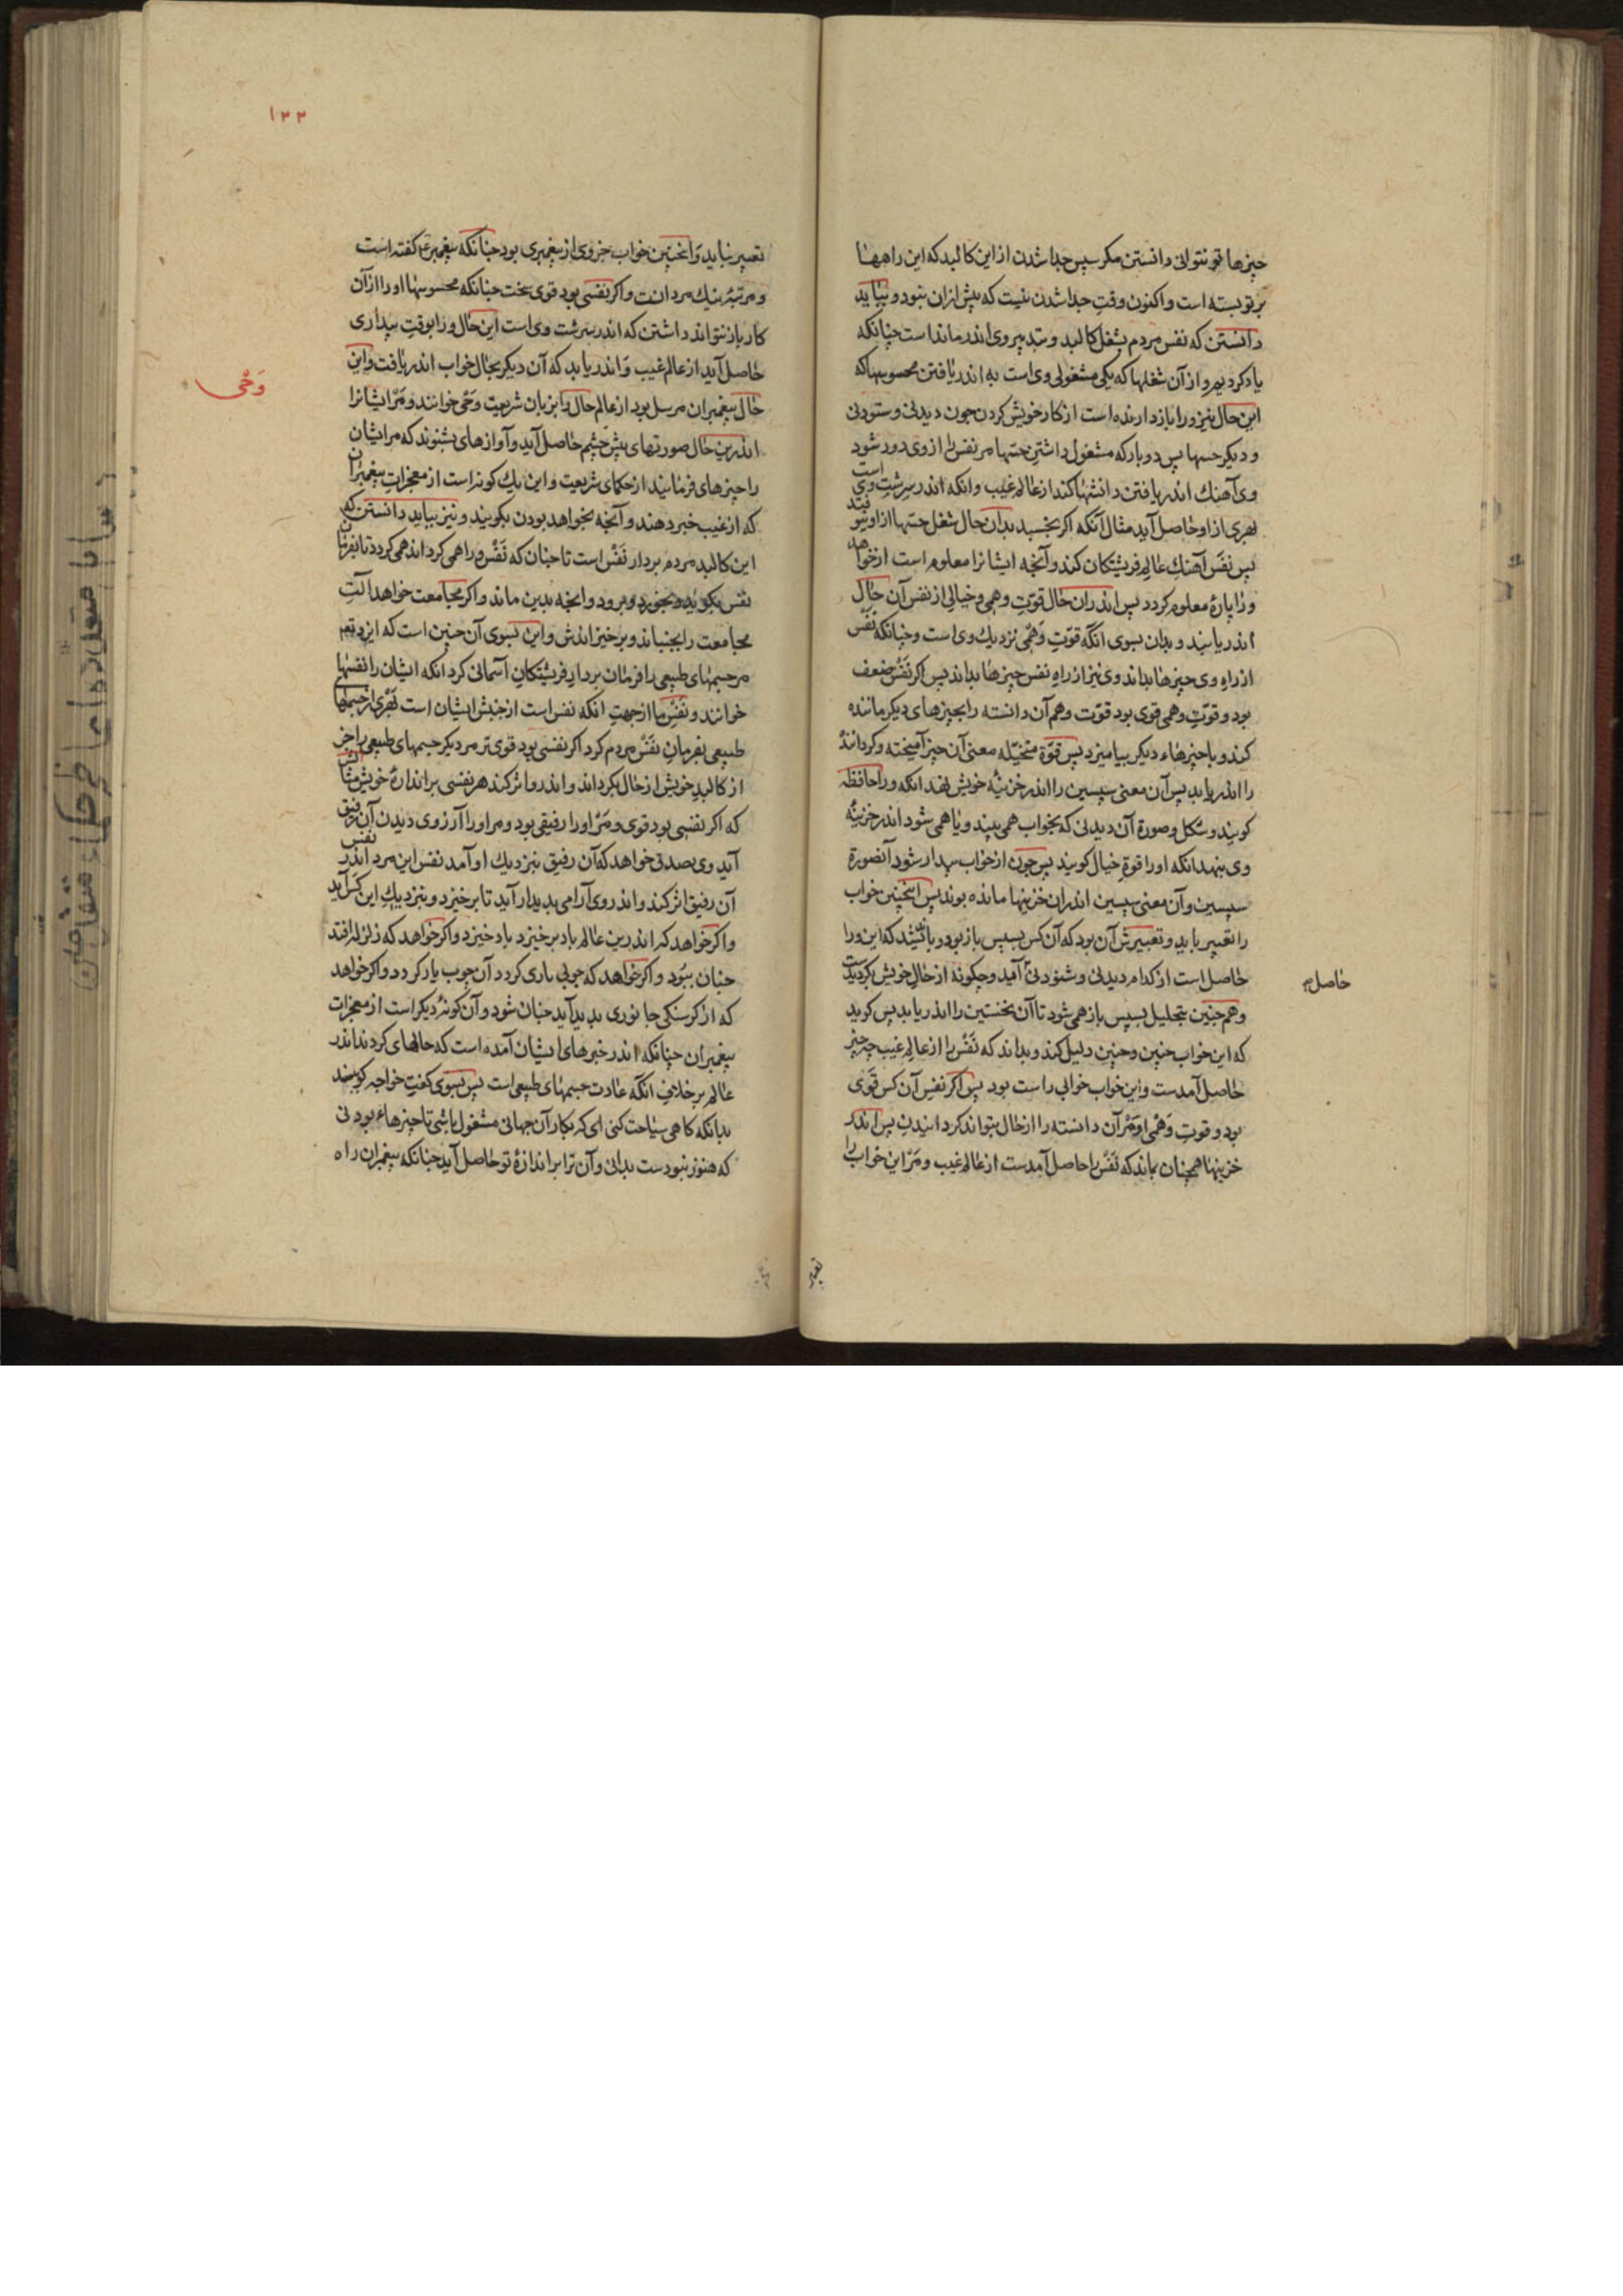 چیزها تو نتوانی دانستن مکر سپس جدا شدن از این کالبد که این راهها
بر تو بسته است و اکنون وقتِ جدا شدن نیست که پیش ازان نبود و بباید
دانستن که نفس مردم بشغل کالبد و تدبیر وی اندر ماندا است چنانکه
یاد کردیم و از آن شغلها که یکی مشغولی وی است به اندر یافتن محسوسها که
این حال نیز ورا باز دارنده است از کار خویش کردن چون دیدنی و ستودنی
و دیکر حسها پس دوبار که مشغول داشتنِ حسّها مر نفس را از وی دور شود
وی آهنك اندر یافتن دانشها کند از عالم غیب و انکه اندر سرشتِ وی است
بهری از او حاصل آید مثال آنکه اکر بخسبد بدان حال شغل حسّها از او
پس نفَس آهنك عالم فریشتکان کند و آنچه ایشانرا معلوم است از خواهد
ورا پارهٔ معلوم کردد پس اندران حال قوّتِ وهمی و خیالی از نفس آن حال
اندر یابند و بدان سوی انکه قوّتِ وَهْمی نزدیك وی است و چنانکه نفْس
از راهِ وی چیزها بداند وی نیز از راهِ نفس چیزها بداند پس اکر نَفْس ضعف
بود و قوّتِ وهمی قوی بود قوّت وهم آن دانسته را بچیزهای دیکر ماننده
کند و با چیزهاء دیکر بیامیزد پس قوّة متخیّله معنی آن چیز آمیخته و کردانند
را اندر یابد پس آن معنی سپسین را اندر خزینهٔ خویش نهد انکه ورا حافظه
کویند و شکل و صورة آن دیدنی که بخواب همی بیند و یا همی شود اندر خزینهٔ
وی بنهد انکه او را قوةِ خیال کویند پس چون از خواب بیدار شود آنصورة
سپسین و آن معنی سپسین اندران خزینها مانده بوند پس اینچنین خواب
را تعبیر باید و تعبیرش آن بود که آن کس بسپس باز بود و باندیشد که این ورا
حاصل است از کدام دیدنی و شنودنی آمد و چکونه از حالِ خویش کردیدست
حاصل
و هم چنین بتحلیل بسپس باز همی شود تا آن نخستین را اندر یابد پس کوید
که این خواب چنین و چنین دلیل کند و بداند که نَفْس را از عالم غیب چه چیز
حاصل آمدست و این خواب خوابی راست بود پس اکر نفس آن کس قَوی
بود و قوتِ وَهْمی او مَرْ آن دانسته را از حال نتواند کردانیدن پس اندر
خزینها همچنان بماند که نَفْس را حاصل آمدست از عالم غیب و مَرْ این خواب را
تعبیر
۱۳۳
تعبیر نباید وَ اینچنین خواب جزوی از پیغمبری بود چنانکه پیغمبر ع کفته است
و مرتبهٔ نیك مردانست و اکر نفسی بود قوی سخت چنانکه محسوسها او را ازان
کار باز نتواند داشتن که اندر سرشت وی است این حال ورا بوقت بیداری
حاصل آید از عالم غیب وَ اندر یابد که آن دیکر بحال خواب اندر یافت و این
حال پیغمبران مرسل بود از عالم حال را بزبان شریعت وحی خوانند و مَرْ ایشانرا
وَحْی
اندرین حال صورتهای پیش چشم حاصل آید و آوازهای بشنوند که مر ایشان
را چیزهای فرمایند از حکمای شریعت و این یك کونه است از معجزاتِ پیغمبران
که از غیب خبر دهند و آنچه بخواهد بودن بکویند و نیز بباید دانستن که
این کالبد مردم بردار نَفْس است تا چنان که نَفْس ورا همی کرداند همی کردد تا بفرمان
نفس بکوید و بخورد و برود و انچه بدین ماند و اکر مجامعت خواهد آلتِ
مجامعت را بجنباند و برخیزاندش و این بسوی آن چنین است که ایزد تع
مر جسمهای طبیعی را فرمان بردارِ فریشتکانِ آسمانی کرد انکه ایشان را نفسها
خوانند و نَفْسِ ما از جهتِ انکه نفس است از جنس ایشان است بهری از جسمها
طبیعی بفرمانِ نَفْس مردم کرد اکر نفسی بود قوی‌تر مر دیکر جسمهای طبیعی را جز
از کالبدِ خویش از حال بکرداند و اندر او اثر کند هر نفسی بر اندازهٔ خویش مثالش
که اکر نفسی بود قوی و مَرْ او را رفیقی بود و مر او را آرزوی دیدن آن رفیق
آید وی بصدقی خواهد که آن رفیق بنزدیك او آمد نفس این مرد اندر نفس
آن رفیق اثر کند و اندر وی آرامی پدیدار آید تا برخیزد و بنزدیكِ این کس آید
و اکر خواهد که اندرین عالم باد برخیزد باد خیزد و اکر خواهد که زلزله افتد
چنان ببود و اکر خواهد که چوبی ماری کردد آن چوب مار کردد و اکر خواهد
که از کرسنکی جانوری پدید آید چنان شود و آن کونهٔ دیکر است از معجزات
پیغمبران چنانکه اندر خبرهای ایشان آمده است که حالهای کردند اندر
عالم بر خلافِ انکه عادت جسمهای طبیعی است پس بسوی کفتِ خواجه کویند
بدانکه کاهی سیاحت کنی ای که بکار آن جهانی مشغول باشی تا چیزهاء بودنی
که هنوز نبودست بدانی و آن ترا بر اندازهٔ تو حاصل آید چنانکه پیغمبران را ه